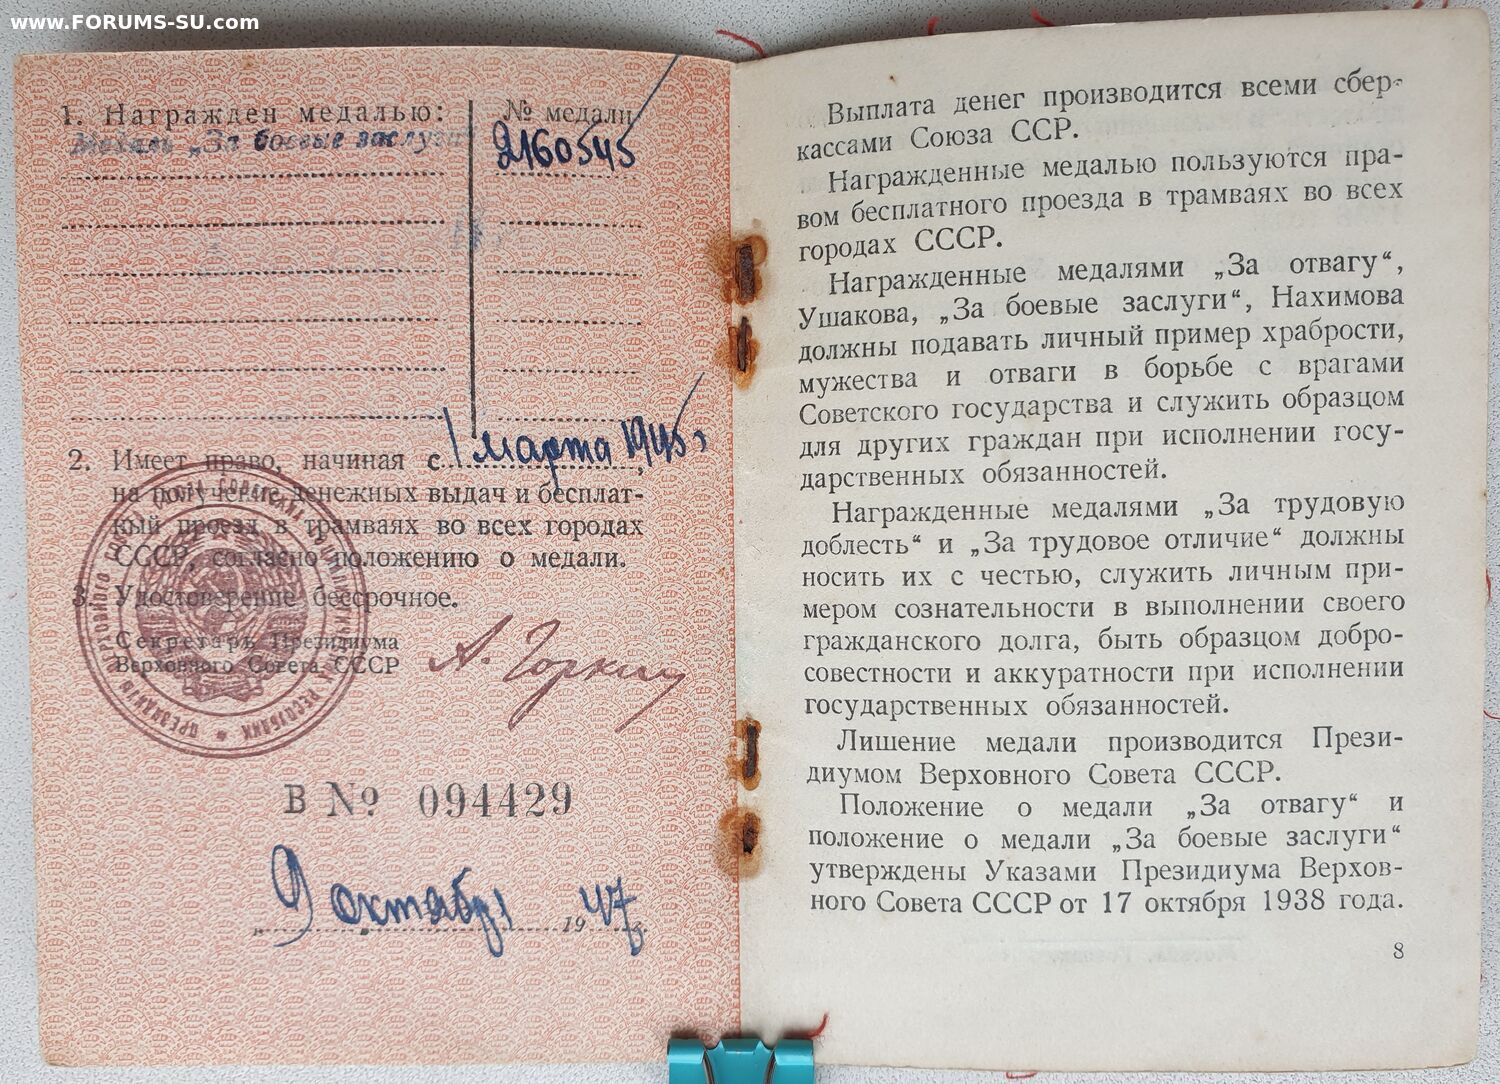 www.FORUMS-SU.com
1. Награжден медалью:
№ медали
Медаль „За боевые заслуги"
2160545
2. Имеет право, начиная с 1 марта 1945 г,
на получение денежных выдач и бесплат-
ный проезд в трамваях во всех городах
СССР, согласно положению о медали.
3. Удостоверение бессрочное.
Секретарь Президиума
Верховного Совета СССР
А. Горкин
В № 094429
„ 9 „ октября 1947 г.
Выплата денег производится всеми сбер-
кассами Союза ССР.
Награжденные медалью пользуются пра-
вом бесплатного проезда в трамваях во всех
городах СССР.
Награжденные медалями „За отвагу“,
Ушакова, „За боевые заслуги“, Нахимова
должны подавать личный пример храбрости,
мужества и отваги в борьбе с врагами
Советского государства и служить образцом
для других граждан при исполнении госу-
дарственных обязанностей.
Награжденные медалями „За трудовую
доблесть“ и „За трудовое отличие“ должны
носить их с честью, служить личным при-
мером сознательности в выполнении своего
гражданского долга, быть образцом добро-
совестности и аккуратности при исполнении
государственных обязанностей.
Лишение медали производится Прези-
диумом Верховного Совета СССР.
Положение о медали „За отвагу“ и
положение о медали „За боевые заслуги“
утверждены Указами Президиума Верхов-
ного Совета СССР от 17 октября 1938 года.
8